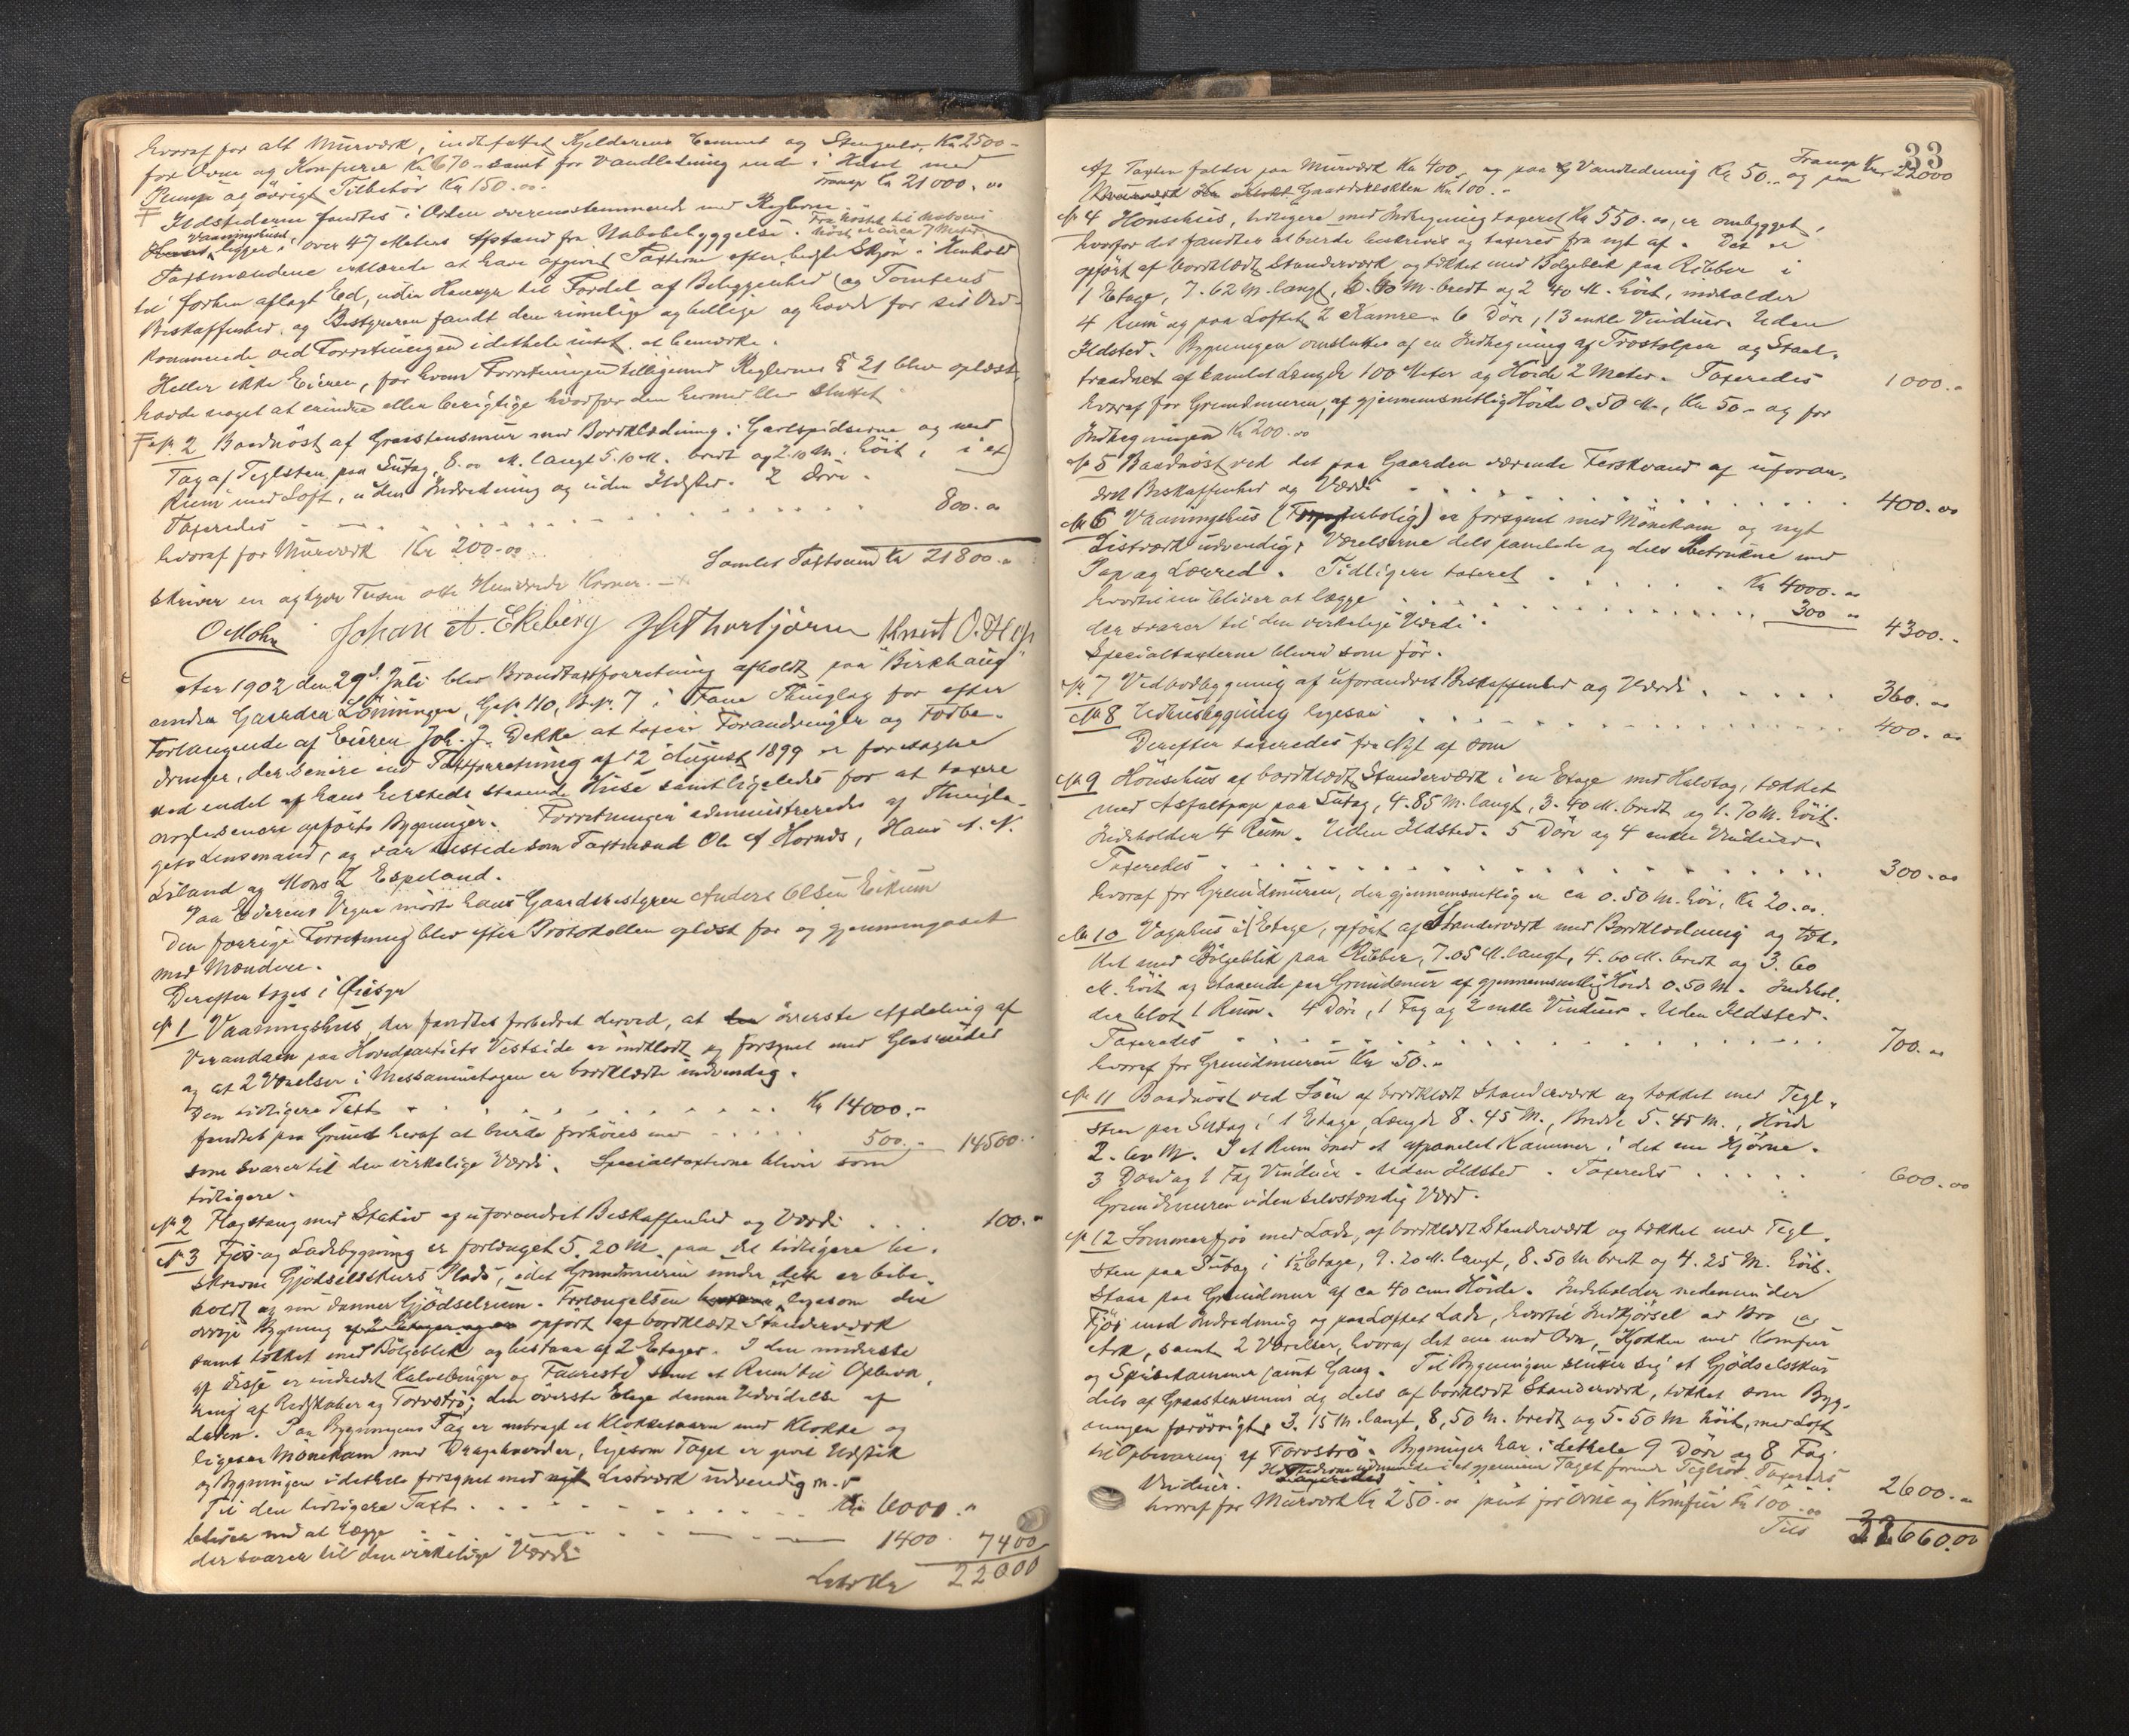 hvoraf for alt Murværk, indbefattet Kjelderens Cement og Stengulv, Kr 2500 -
for Ovne og Komfurer Kr 670 - samt for Vandledning ind i Huset med
Pumpe og övrigt Tilbehör Kr 150.00.
Transp Kr 21000.00
Ildstederne fandtes i Orden overensstemmende med Reglerne.
Vaaningshuset ligger i over 47 Meters Afstand fra Nabobebyggelse. Fra Nöstet til Naboens
Nöst er circa 7 Meter.
Taxtmændene erklærede at have afgivet Taxterne efter bedste Skjön i Henhold
til forhen aflagt Ed, uden Hensyn til Fordel af Beliggenhed og Tomtens
Beskaffenhed, og Bestyreren fandt den rimelige og billige og havde for sit Ved-
kommende ved Forretningen idethele intet at bemærke.
Heller ikke Eieren, for hvem Forretningen tilligemed Reglernes § 21 blev oplæst,
havde noget at erindre eller berigtige hvorfor den hermed blev sluttet
No 2 Baadnöst af Graastensmur med Bordklædning i Gavlspidserne og med
Tag af Teglsten paa Sutag, 8.00 M. langt 5.10 M. bredt og 2.10 M. höit, i et
Rum med Loft, uden Indredning og uden Ildsted. 2 Döre.
Taxeredes 800.00
hvoraf for Murværk Kr 200.00
Samlet Taxtsum Kr 21800.00
skriver en og tyve Tusen otte Hundrede Kroner.
O Mohn Johan A. Ekeberg Thorbjörnsen Knut O.
Aar 1902 den 29d Juli blev Brandtaxtforretning afholdt paa "Birkhaug"
under Gaarden Lönningen, G.No 110, B.No 7 i Fane Thinglag for efter
Forlangende af Eieren Joh. J. Dekke at taxere Forandringer og Forbe-
dringer, der senere end Taxtforretning af 12 August 1899 er foretagne
ved endel af hans hersteds staaende Huse samt ligeledes for at taxere
nogle senere opförte Bygninger. Forretningen administreredes af Thingla-
gets Lensmand, og var tilstede som Taxtmænd Ole A Hornæs, Hans A. N.
Liland og Mons L Espeland.
Paa Eierens Vegne mödte hans Gaardsbestyrer Anders Olsen Eikum
Den forrige Forretning blev efter Protokollen oplæst for og gjennemgaaet
med Mændene.
Derefter toges i Öiesyn
No 1 Vaaningshus, der fandtes forbedret derved, at överste Afdeling af
Verandaen paa Hovedpartiets Vestside er indklædt og forsynet med Glasruder
og at 2 Værelser i Messaninetagen er bordklædte indvendig.
Den tidligere Taxt Kr 14000.-
fandtes paa Grund heraf at burde forhöies med 500.- 14500.-
som svarer til den virkelige Værdi. Specialtaxterne bliver som
tidligere.
No 2 Flagstang med Stativ af uforandret Beskaffenhed og Værdi 100.-
No 3 Fjös- og Ladebygning er forlænget 5.20 M paa det tidligere be-
skrevne Gjödselsskurs Plads, idet Grundmuren under dette er bibe-
holdt og nu danner Gjödselrum. Forlængelsen ligesom den
övrige Bygning opfört af bordklædt Standerværk
samt tækket med Bölgeblik og bestaar af 2 Etager. I den underste
af disse er indredet Kalvebinger og Faaresti samt et Rum til Opbeva-
ring af Redskaber og Torvströ; den överste Etage danner Udvidelse af
Laden. Paa Bygningens Tag er anbragt et Klokketaarn med Klokke og
ligesaa Mönekam med Dragehoveder, ligesom Taget er gjort Udstik
og Bygningen idethele forsynet med nyt Listværk udvendig m. v
Til den tidligere Taxt Kr 6000.-
bliver nu at lægge 1400 7400
der svarer til den virkelige Værdi
Lateris Kr 22000
33
Transp Kr 22000
Af Taxten falder paa Murværk Kr 400, og paa Vandledning Kr 50.- og paa
Gaardsklokken Kr 100.-
No 4 Hönsehus, tidligere med Indhegning taxeret Kr 550.00, er ombygget,
hvorfor det fandtes at burde beskrives og taxeres fra nyt af. Det er
opfört af bordklædt Standerværk og tækket med Bölgeblik paa Ribber i
1 Etage, 7.62 M. langt, M. bredt og 2.40 M. höit, indeholder
4 Rum og paa Loftet 2 Kamre. 6 Döre, 13 enkle Vinduer. Uden
Ildsted. Bygningen omsluttes af en Indhegning af Træstolper og Staal-
traadnet af samlet Længde 100 Meter og Höide 2 Meter. Taxeredes 1000.-
hvoraf for Grundmuren, af gjennemsnitlig Höide 0.50 M, Kr 50.- og for
Indhegningen Kr 200.00
No 5 Baadnöst ved det paa Gaarden værende Ferskvand af uforan-
dret Beskaffenhed og Værdi 400.00
No 6 Vaaningshus (Forpagterbolig) er forsynet med Mönekam og nyt
Listværk udvendig, Værelserne dels panelede og dels betrukne med
Pap og Lærred. Tidligere taxeret Kr 4000.00
hvortil nu bliver at lægge 300.00 4300.-
der svarer til den virkelige Værdi.
Specialtaxterne bliver som för.
No 7 Vedbodbygning af uforandret Beskaffenhed og Værdi 360.00
No 8 Udhusbygning ligesaa 400.00
Derefter taxeredes fra Nyt af som
No 9 Hönsehus af bordklædt Standerværk i en Etage med Halvtag, tækket
med Asfaltpap paa Sutag, 4.85 M. langt, 3.40 M. bredt og 1.70 M. höit.
Indeholder 4 Rum. Uden Ildsted. 5 Döre og 4 enkle Vinduer.
Taxeredes 300.00
hvoraf for Grundmuren, der gjennemsnitlig er ca 0.50 M. höi, Kr 20.00.
No 10 Vognhus i 1 Etage, opfört af Standerværk med Bordklædning og tæk-
ket med Bölgeblik paa Ribber, 7.05 M. langt, 4.60 M. bredt og 3.60
M. höit og staaende paa Grundmur af gjennemsnitlig Höide 0.50 M. Indehol-
der blot 1 Rum. 4 Döre, 1 Fag og 2 enkle Vinduer. Uden Ildsted.
Taxeredes 700.00
hvoraf for Grundmuren Kr 50.-
No 11 Baadnöst ved Söen af bordklædt Standerværk og tækket med Tegl-
sten paa Sutag i 1 Etage, Længde 8.45 M., Bredde 5.45 M., Höide
2.60 M. I et Rum med et afpanelet Kammer i det ene Hjörne.
3 Döre og 1 Fag Vinduer. Uden Ildsted. Taxeredes 600.00
Grundmuren uden selvstændig Værd.
No 12 Sommerfjös med Lade, af bordklædt Standerværk og tækket med Tegl-
sten paa Sutag i 1½ Etage, 9.20 M. langt, 8.50 M bredt og 4.25 M. höit.
Staar paa Grundmur af ca 40 cms Höide. Indeholder nedenunder
Fjös med Indredning og paa Loftet Lade, hvortil Indkjörsel ad Bro og
Ark, samt 2 Værelser, hvoraf det ene med Ovn, Kjökken med Komfur
og Spisekammer samt Gang. Til Bygningen slutter sig et Gjödselsskur
dels af Graastensmur og dels af bordklædt Standerværk, tækket som Byg-
ningen forövrigt, 3.15 M. langt, 8,50 M. bredt og 5.50 M höit, med Loft
til Opbevaring af Torvströ. Bygningen har i dethele 9 Döre og 8 Fag
Vinduer. Ildstederne udmunde i et gjennem Taget förende Teglrör. Taxeredes 2600.00
hvoraf for Murværk Kr 250.00 samt for Ovne og Komfur Kr 100.00
Tils 32660.00